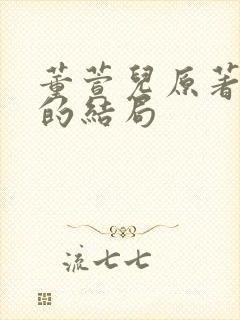 董萱兒原著
的結局
流七七